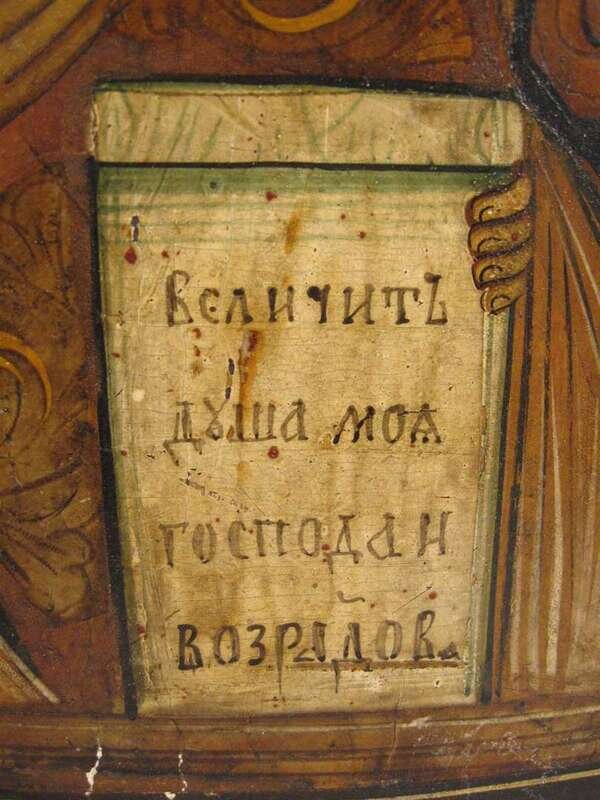 величитъ
дꙋша моѧ
господа и
возрадовᲂ